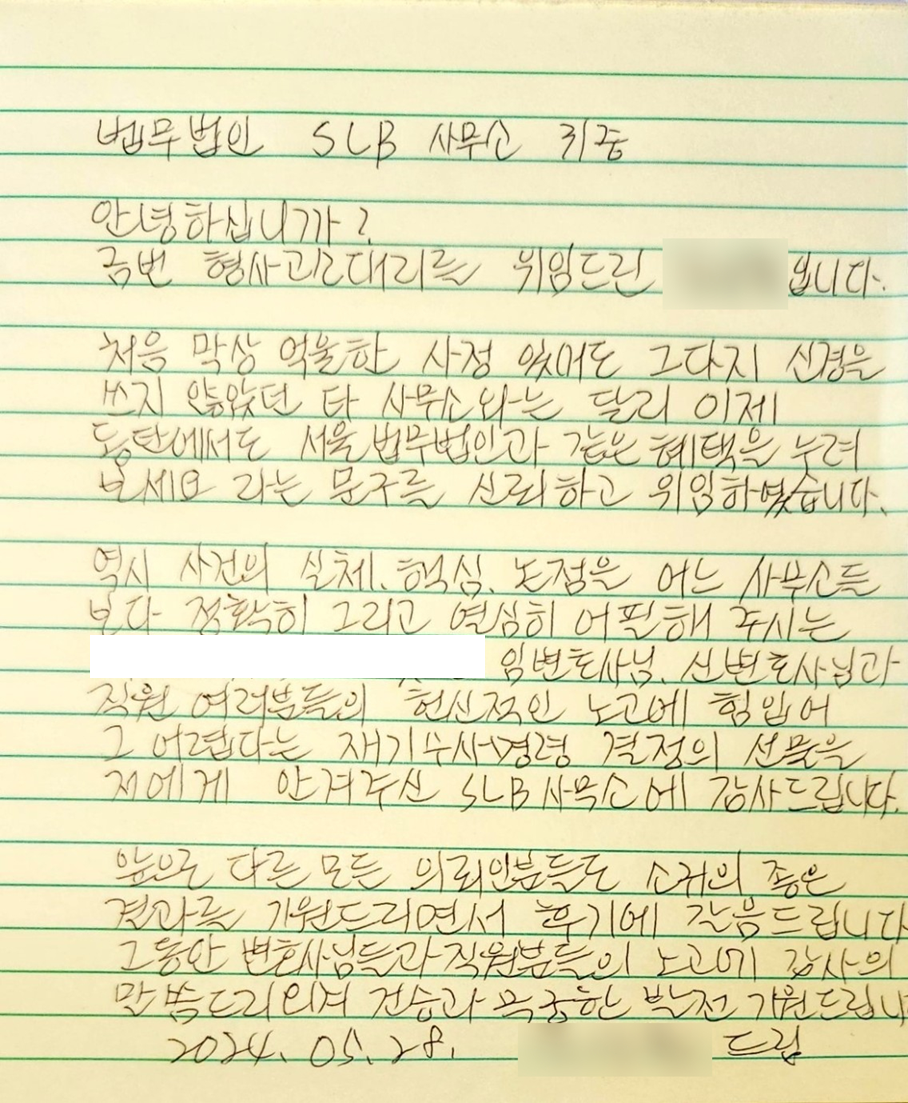 법무법인 SLB 사무소 귀중
안녕하십니까?
금번 형사고소대리를 위임드린 입니다.
처음 막상 억울한 사정 있어도 그다지 신경을
쓰지 않았던 타 사무소와는 달리 이제
동탄에서도 서울법무법인과 같은 혜택을 누려
보세요 라는 문구를 신뢰하고 위임하였습니다.
역시 사건의 실체, 핵심, 논점을 어느 사무소들
보다 정확히 그리고 열심히 어필해 주시는
임변호사님, 신변호사님과
직원 여러분들의 헌신적인 노고에 힘입어
그 어렵다는 재기수사명령 결정의 선물을
저에게 안겨주신 SLB사무소에 감사드립니다.
앞으로 다른 모든 의뢰인분들도 소귀의 좋은
결과를 기원드리면서 후기에 갈음드립니다
그동안 변호사님들과 직원분들의 노고에 감사의
말씀드리오며 건승과 무궁한 발전 기원드립니
2024. 05. 28. 드림